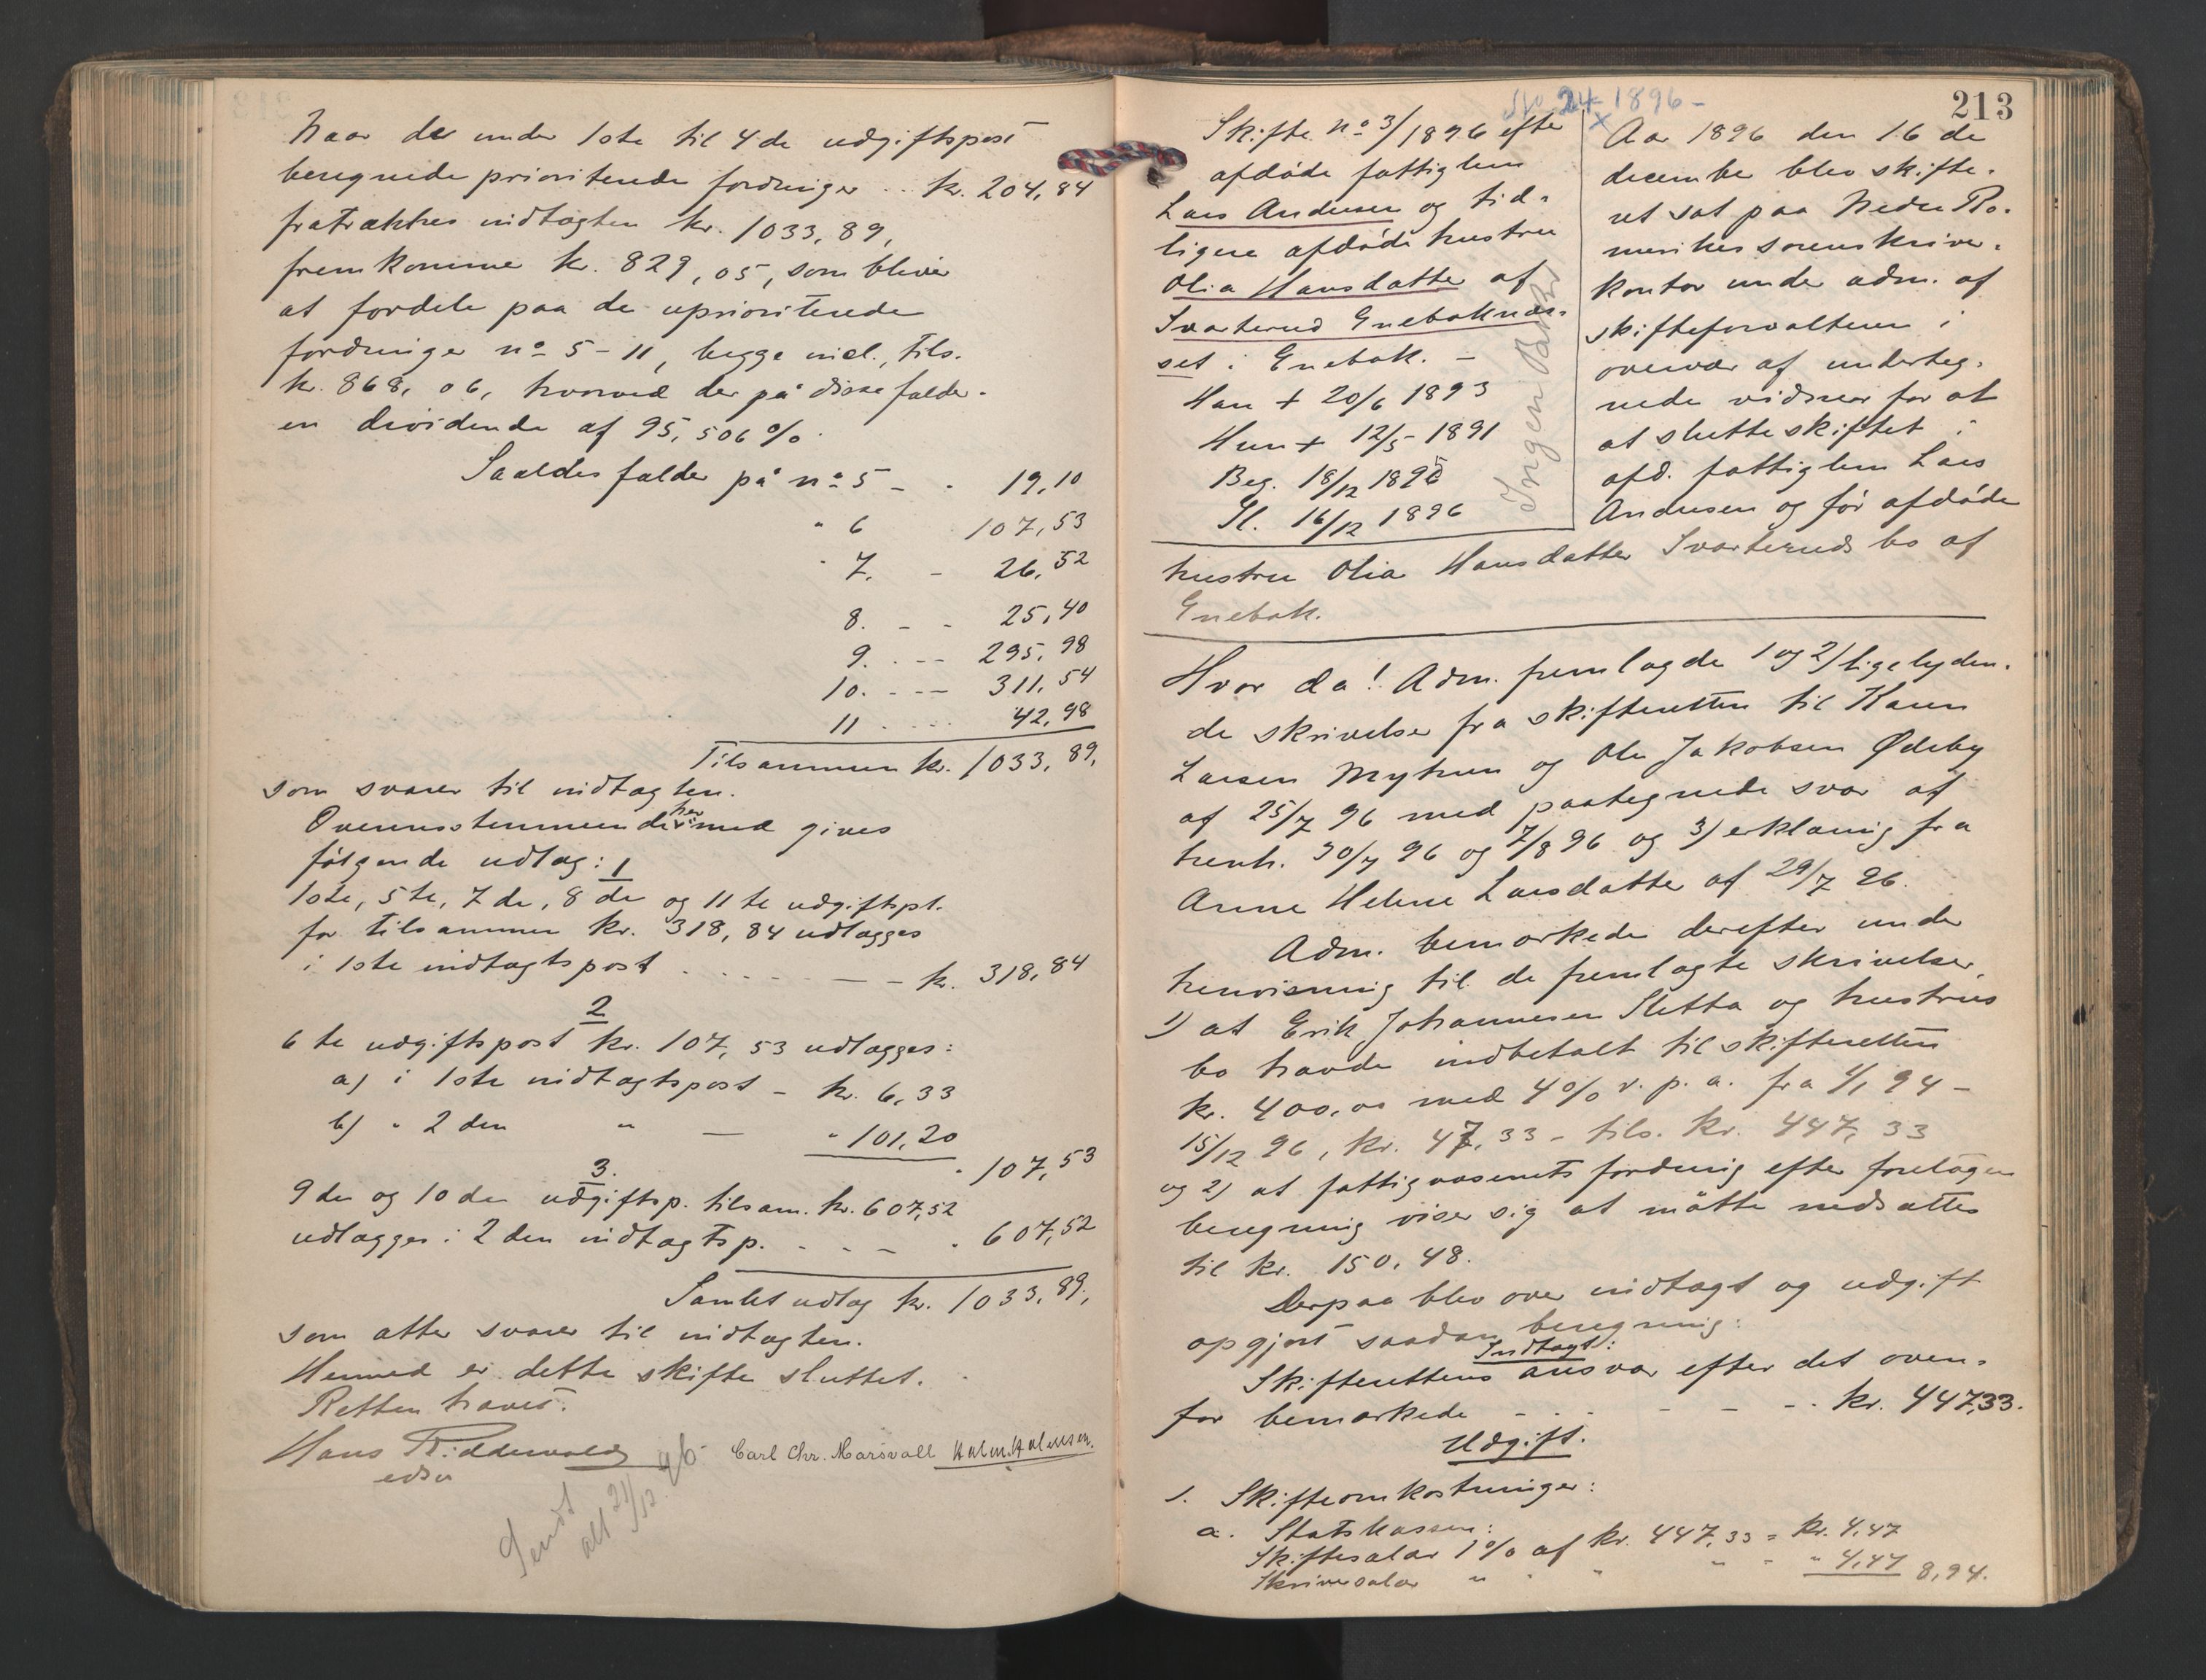 Naar de under 1ste til 4de udgiftspost
beregnede prioriterede fordringer .. kr. 204,84
fratrækkes indtægten kr. 1033,89,
fremkomme kr. 829,05, som bliver
at fordele paa de uprioriterede
fordringer no 5-11, begge incl., tils.
kr. 868,06, hvorved der på disse falder
en dividende af 95,506 %.
Saaledes falder på no 5 - - 19,10
" 6 107,53
" 7. - 26,52
8. - - 25,40
9. - - - 295,98
10. - - - 311,54
11 - - - - 42,98
Tilsammen kr. 1033,89,
som svarer til indtægten.
Overensstemmende hermed gives
følgende udlæg:
1
1ste, 5te, 7de, 8de og 11te udgiftspt.
for tilsammen kr. 318,84 udlægges
i 1ste indtægtspost - - - - - kr. 318,84
2
6te udgiftspost kr. 107,53 udlægges:
a) i 1ste indtægtspost - kr. 6,33
b) " 2den " - " 101,20
" 107,53
3.
9de og 10de udgiftsp. tilsam. kr. 607,52
udlægges i 2den indtægtsp. - - - " 607,52
Samlet udlæg kr. 1033,89,
som atter svarer til indtægten.
Hermed er dette skifte sluttet.
Retten hævet.
Hans Riddervold
edsv
Carl Chr. Marsvall Halm. Halmsen.
Sendt
alt 21/12 96
No 24 - 1896 -
213
Skifte no 3/1896 efter
afdøde fattiglem
Lars Andersen og tid-
ligere afdøde hustru
Olia Hansdatter af
Svarterud Enebaknes-
set i Enebak. -
Han + 20/6 1893
Hun + 12/5 - 1891
Beg. 18/12 1895
Sl. 16/12 1896
Ingen
Aar 1896 den 16de
december blev skifte-
ret sat paa Nedre Ro-
merikes sorenskriver-
kontor under adm. af
skifteforvalteren i
overvær af underteg-
nede vidner for at
at slutte skiftet i
afd. fattiglem Lars
Andersen og før afdøde
hustru Olia Hansdatter Svarteruds bo af
Enebak.
Hvor da! Adm. fremlagde 1 og 2) ligelyden-
de skrivelser fra skifteretten til Karen
Larsen Mythun og Ole Jakobsen Ødeby
af 25/7 96 med paategnede svar af
henh. 30/7 96 og 7/8 96 og 3) erklæring fra
Anne Helene Larsdatter af 29/7 96.
Adm. bemærkede derefter under
henvisning til de fremlagte skrivelser,
1) at Erik Johannesen Sletta og hustrus
bo havde indbetalt til skifteretten
kr. 400,00 med 4 % r. p. a. fra 4/1 94 -
15/12 96, kr. 47,33 - tils. kr. 447,33
og 2) at fattigvæsenets fordring efter foretagen
beregning viser sig at måtte nedsættes
til kr. 150,48.
Derpaa blev over indtægt og udgift
opgjort saadan beregning:
Indtægt:
Skifterettens ansvar efter det oven-
for bemærkede - - - - - - kr. 447,33.
Udgift.
1. Skifteomkostninger:
a. Statskassen:
Skiftesalær 1 % af kr. 447,33 = kr. 4,47
Skriversalær " " " " - " 4,47 8,94.